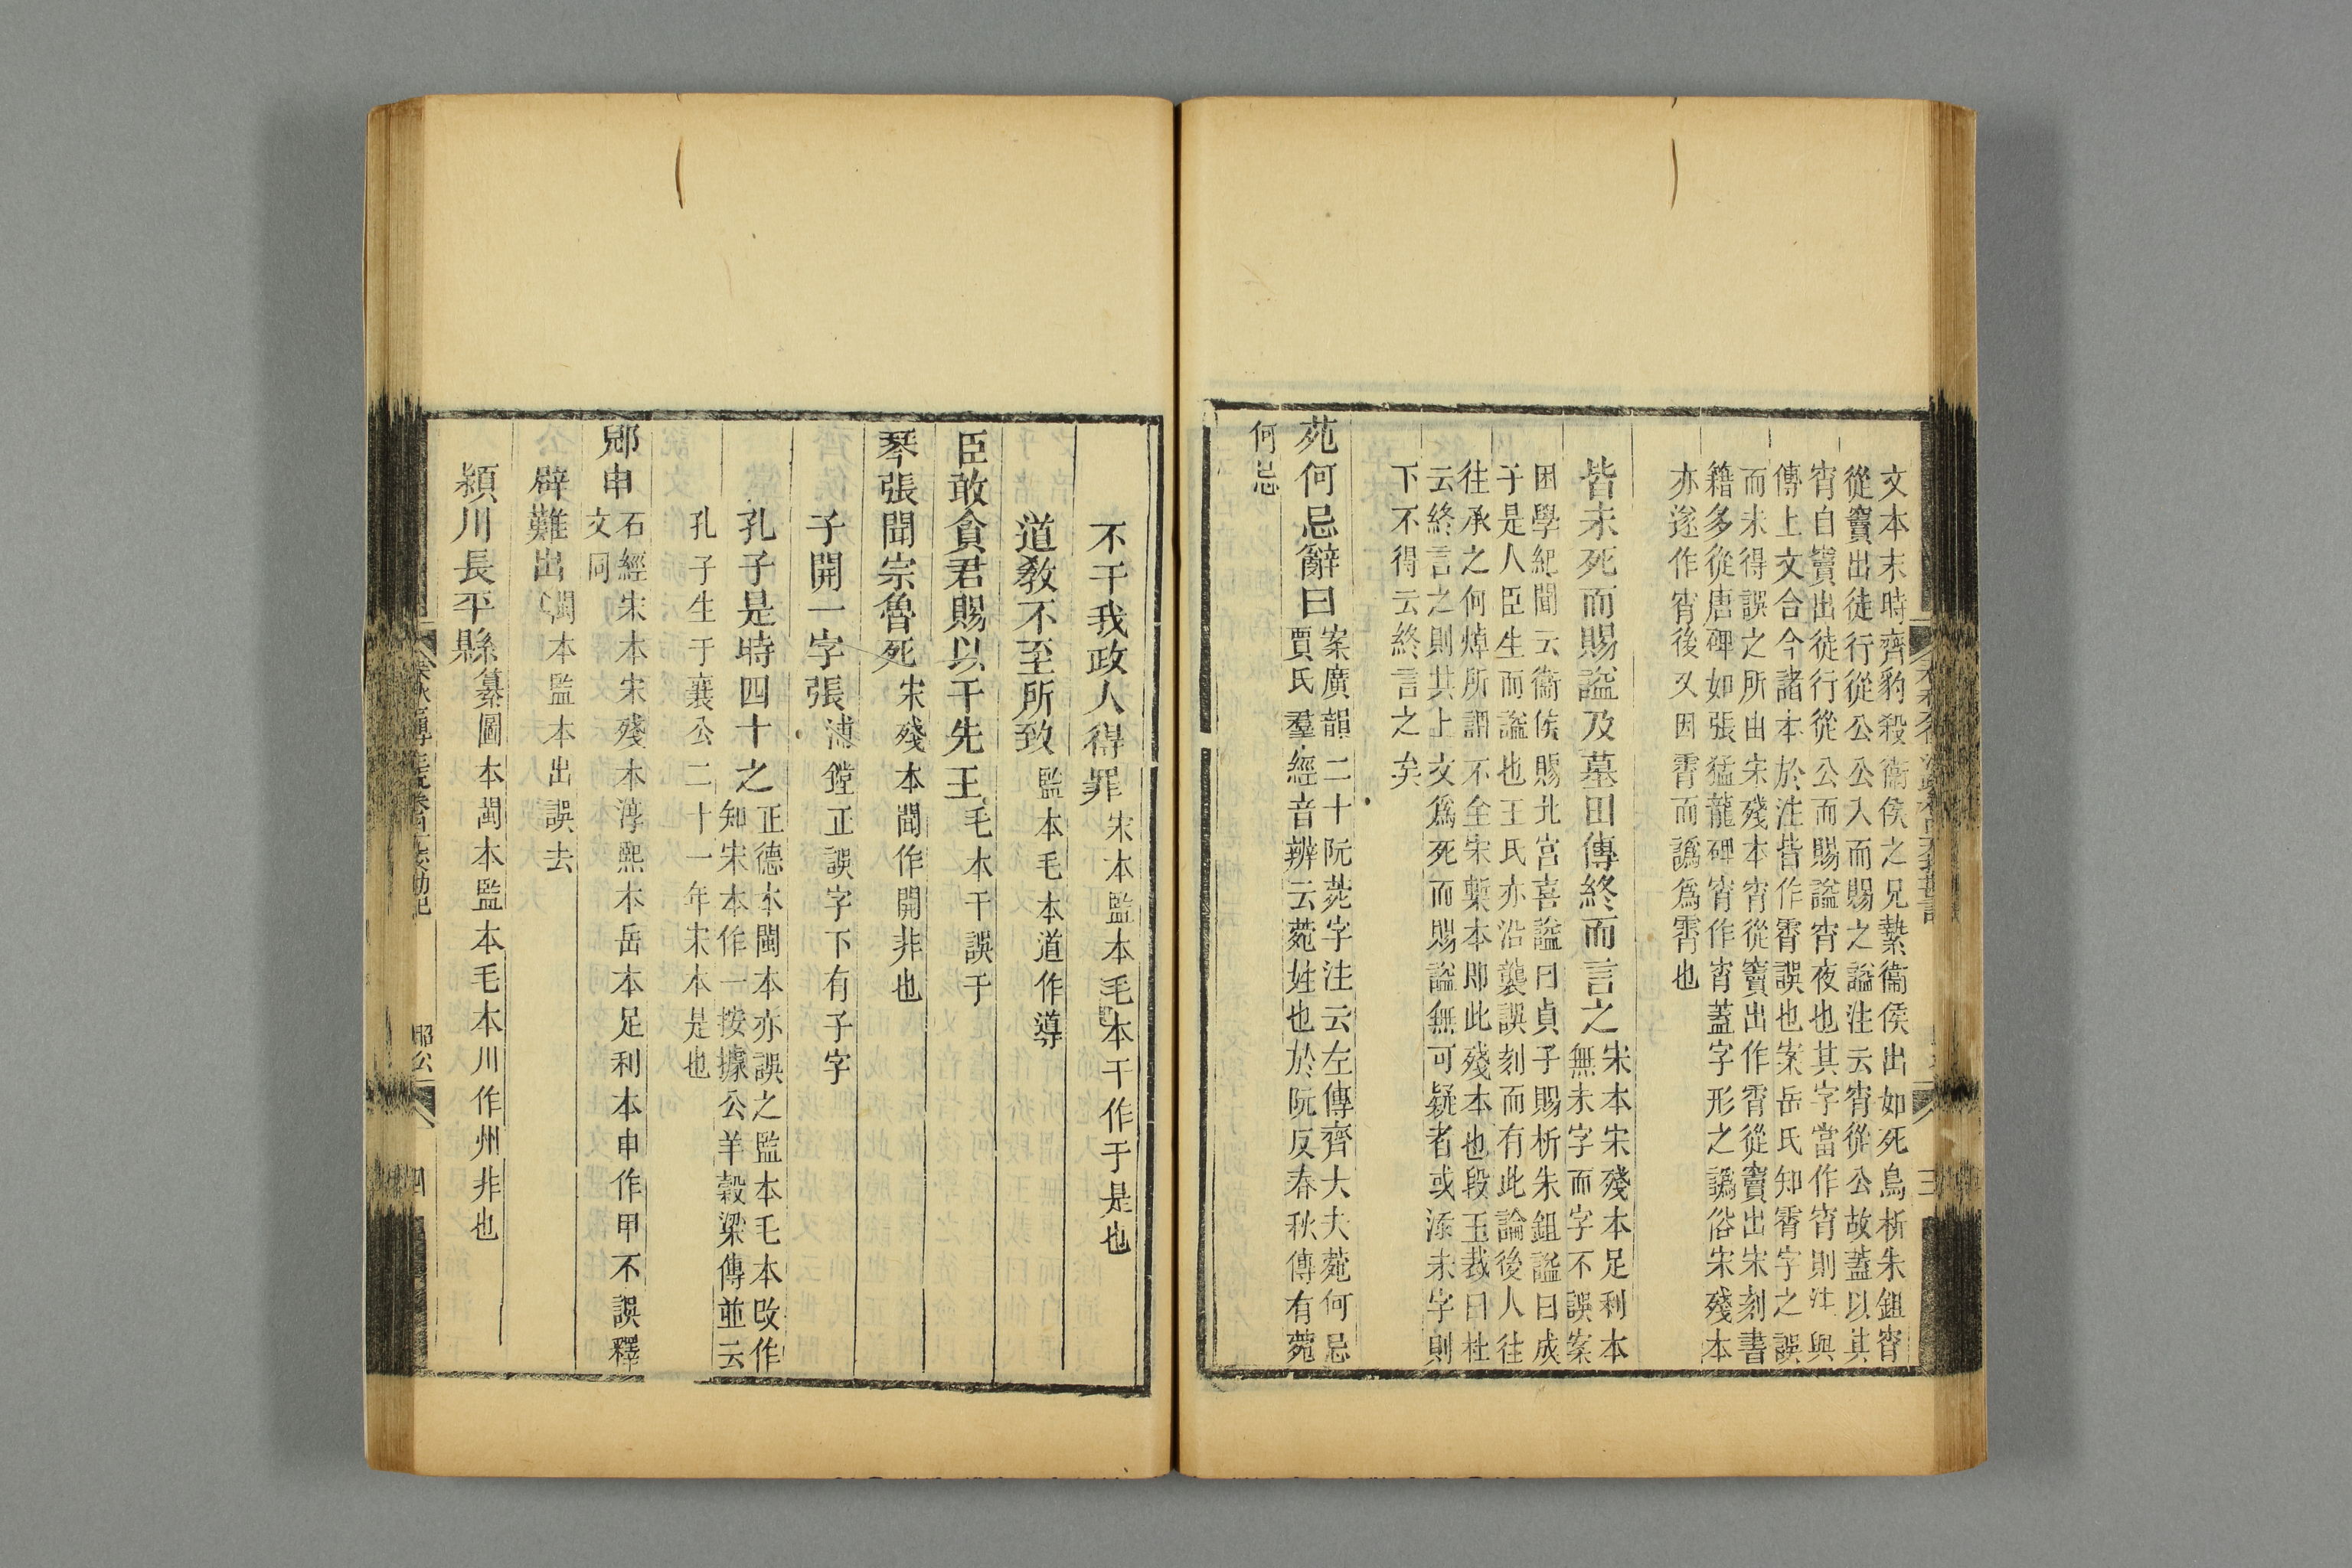 文本末時齊豹殺衞侯之兄縶衞侯出如死鳥析朱鉏宵
從竇出徒行從公公入而賜之謚注云宵從公故蓋以其
宵自竇出徒行從公而賜謚宵夜也其字當作宵則注與
傳上文合今諸本於注皆作霄誤也案岳氏知霄字之誤
而未得誤之所由宋殘本宵從竇出作霄從竇出宋刻書
籍多從唐碑如張猛龍碑宵作宵蓋字形之譌俗宋殘本
亦遂作宵後又因霄而譌爲霄也
皆未死而賜謚及墓田傳終而言之
宋本宋殘本足利本
無未字而字不誤案
困學紀聞云衞侯賜北宮喜謚曰貞子賜析朱鉏謚曰成
子是人臣生而謚也王氏亦沿襲誤刻而有此論後人往
往承之何焯所謂不全宋槧本即此殘本也段玉裁曰杜
云終言之則其上文爲死而賜謚無可疑者或添未字則
下不得云終言之矣
苑何忌辭曰
案廣韻二十阮菀字注云左傳齊大夫菀何忌
賈氏羣經音辨云菀姓也於阮反春秋傳有菀
何忌
不干我政人得罪
宋本監本毛本干作于是也
道敎不至所致
監本毛本道作導
臣敢貪君賜以干先王
毛本干誤于
琴張聞宗魯死
宋殘本聞作開非也
子開一字張
浦鏜正誤字下有子字
孔子是時四十之
正德本閩本亦誤之監本毛本改作
知宋本作一按據公羊穀梁傳並云
孔子生于襄公二十一年宋本是也
郳申
石經宋本宋殘本淳熙本岳本足利本申作甲不誤釋
文同
辟難出
閩本監本出誤去
潁川長平縣
纂圖本閩本監本毛本川作州非也
四